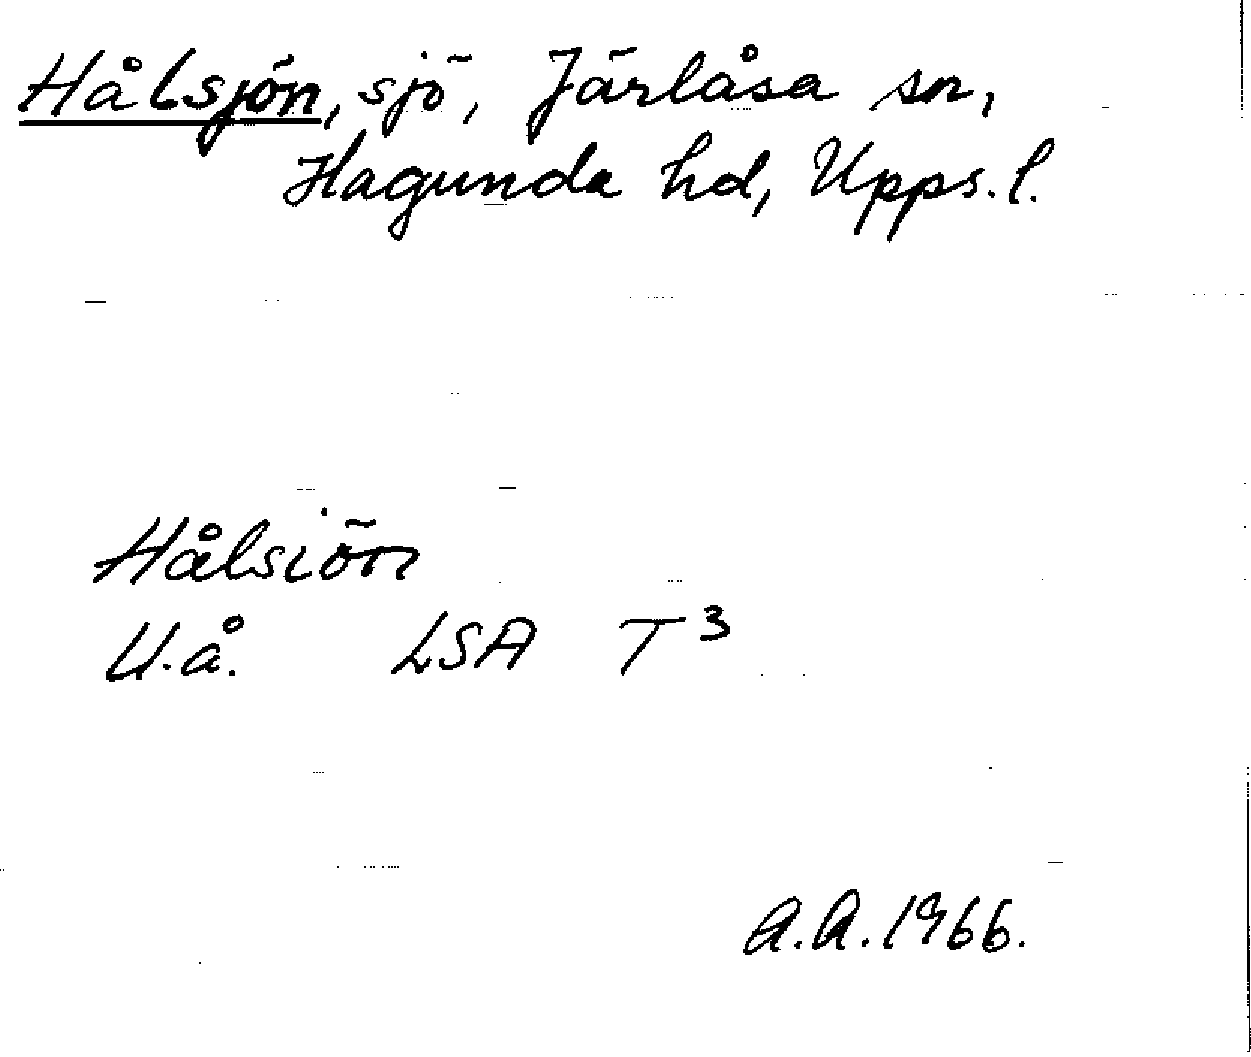 Hålsjön, sjö, Järlåsa sn,
Hagunda hd, Upps. l.
Hålsiön
U.å. LSA T³
A.A. 1966.